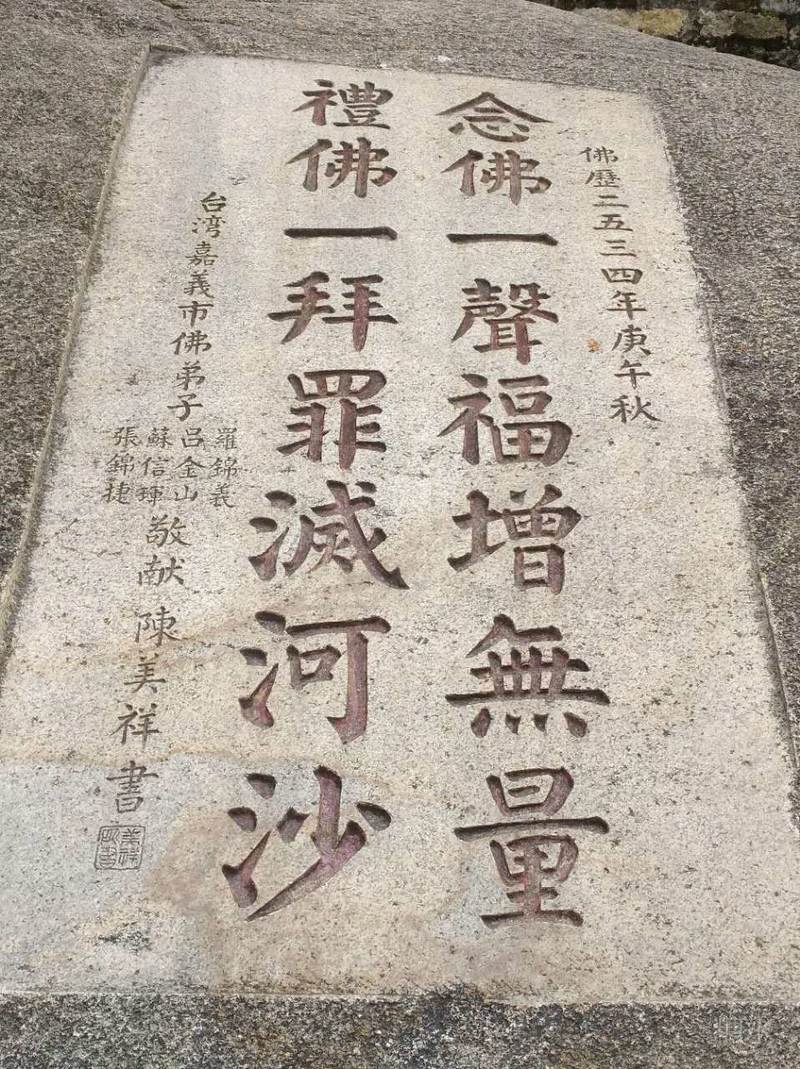 佛歷二五三四年庚午秋
念佛一聲福增無量
禮佛一拜罪滅河沙
台湾嘉義市佛弟子
羅錦義
呂金山
蘇信琿
張錦捷
敬献
陳美祥書